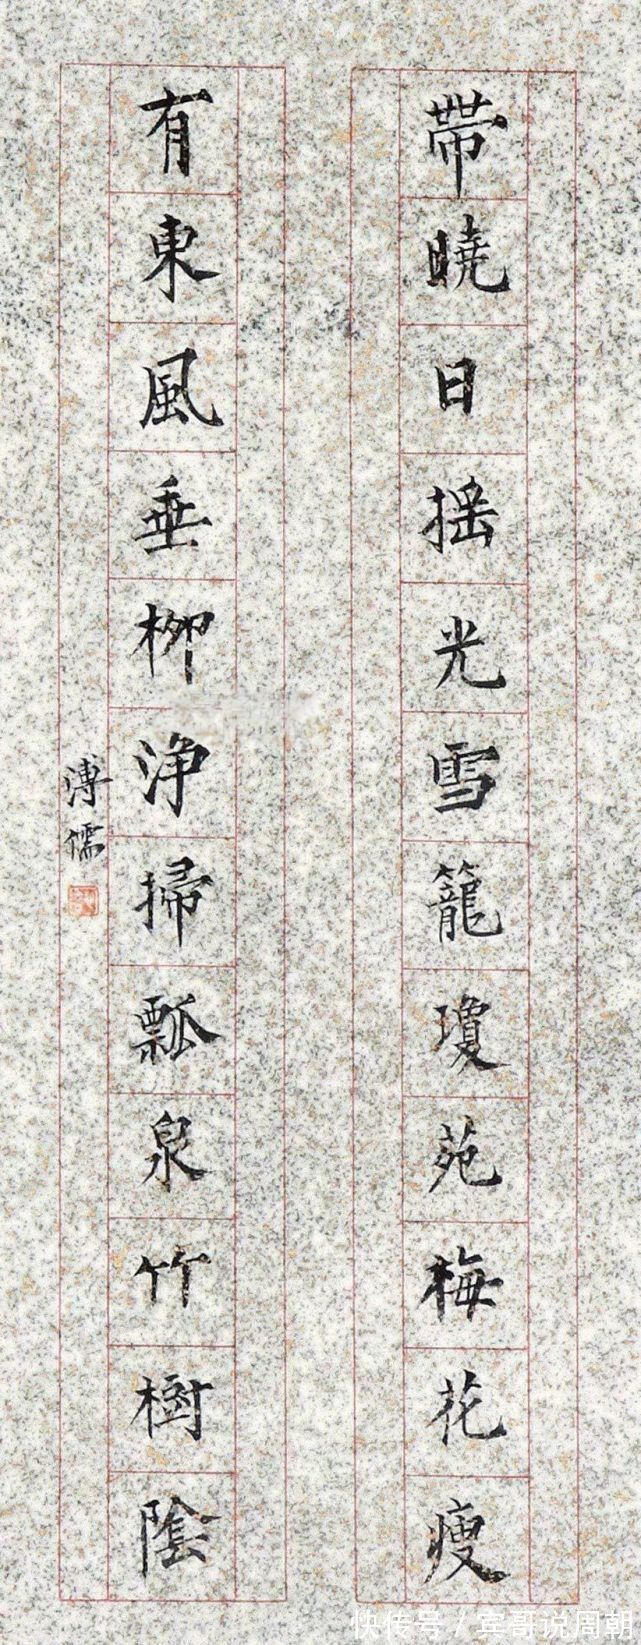 帶曉日搖光雪籠瓊苑梅花瘦
有東風垂柳淨掃瓢泉竹樹陰
溥儒
快传号 / 宾哥说周朝